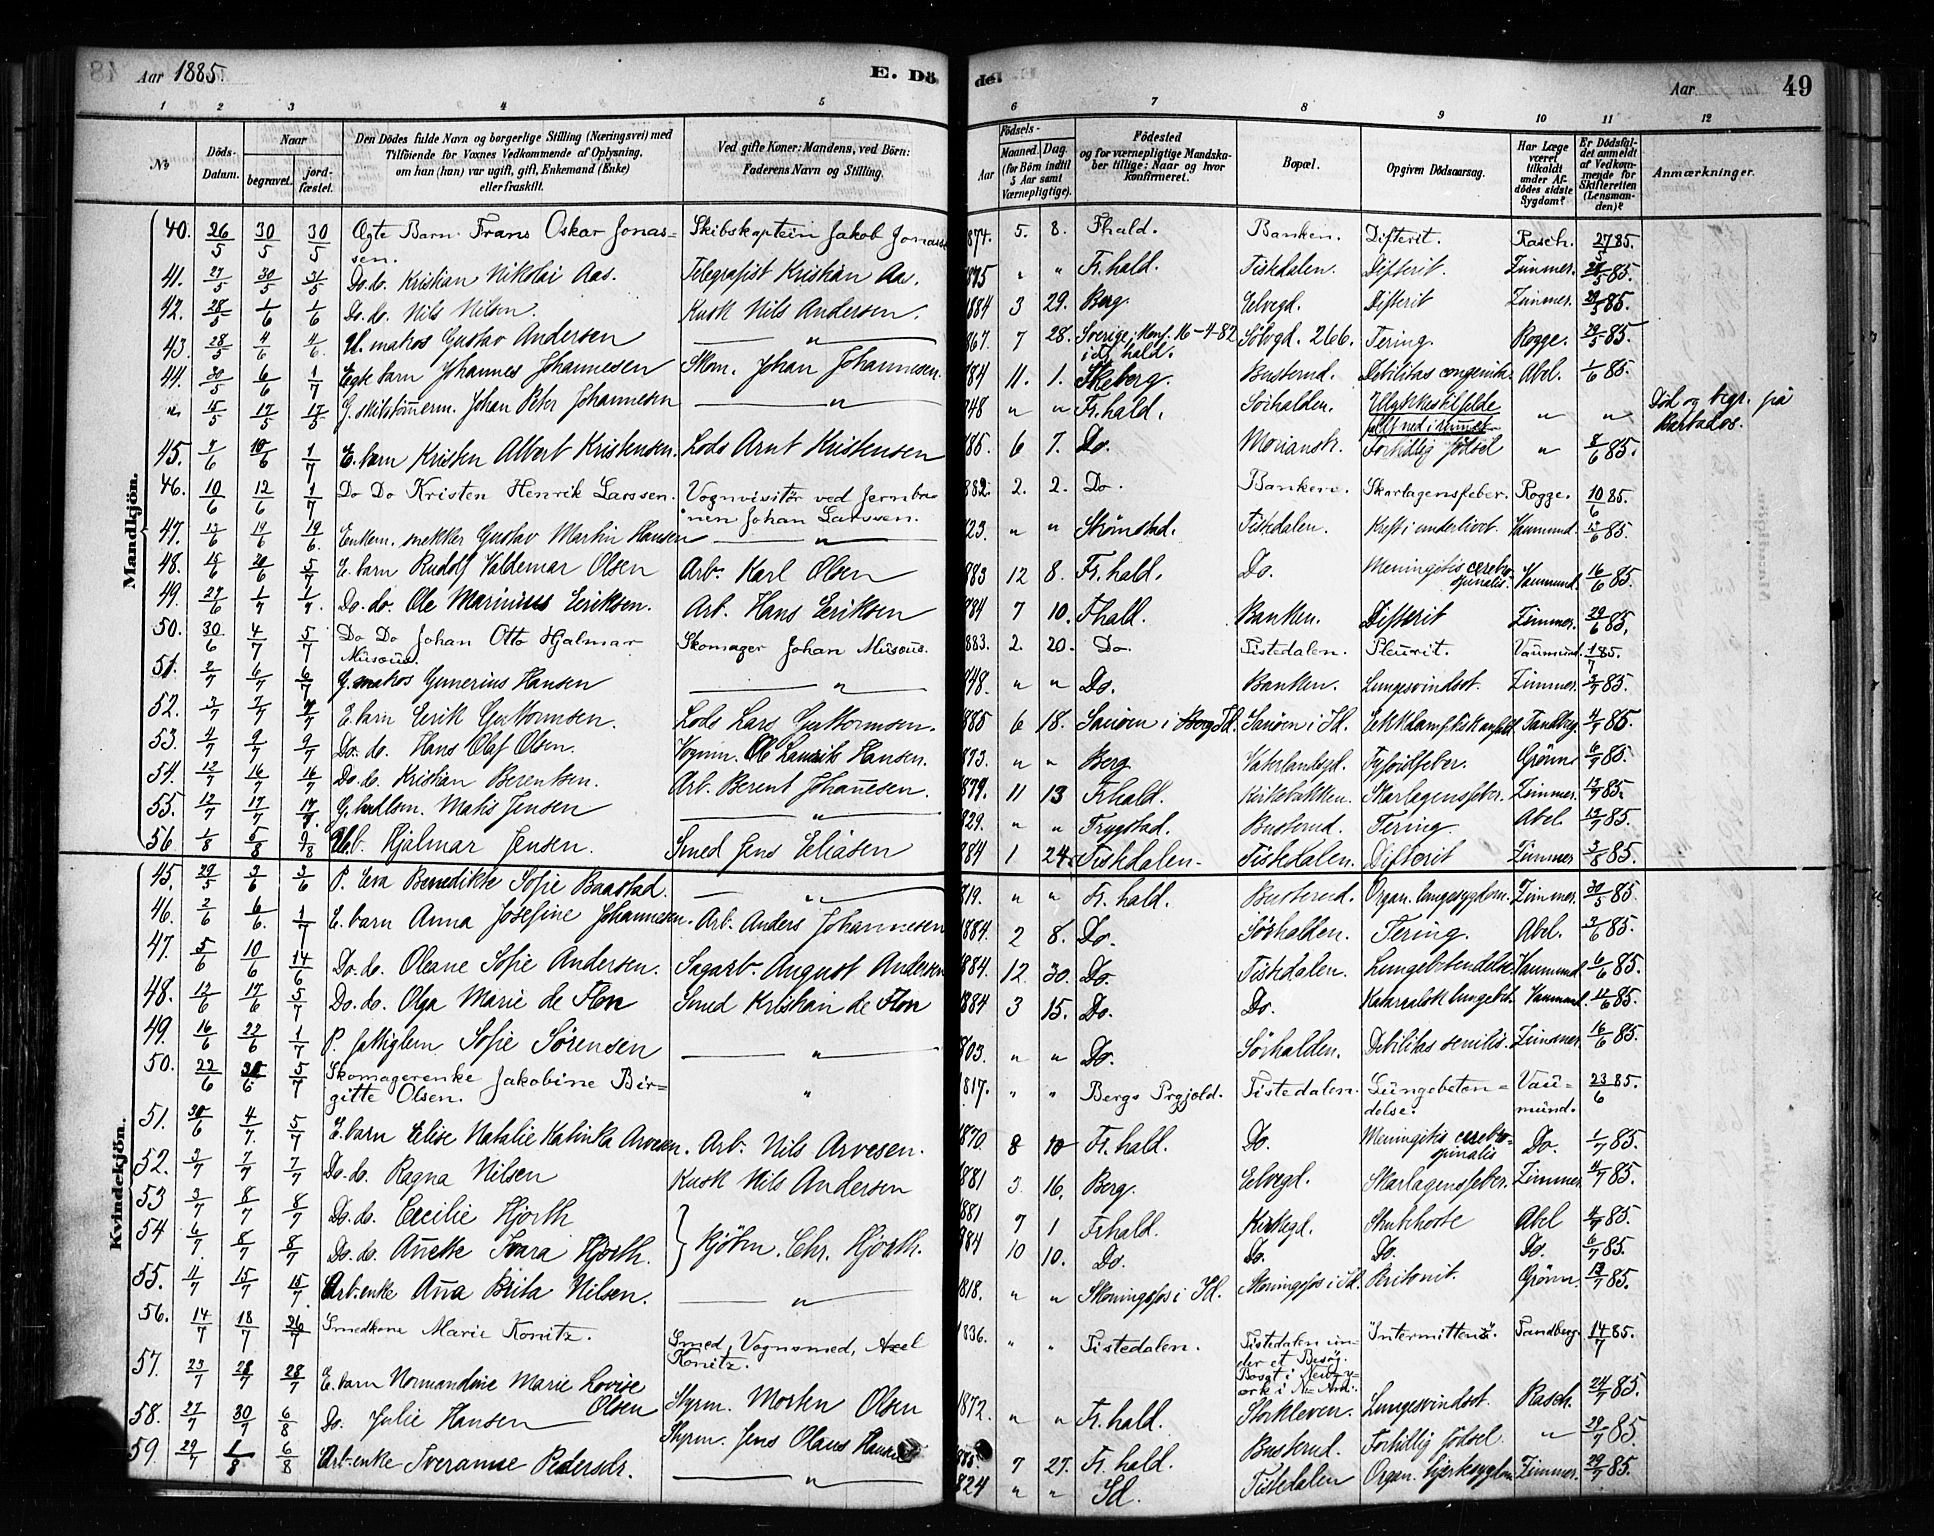 Aar 1885.
E. Dö
de.
Aar
49
1 2 3 4 5 6 7 8 9 10 11 12
No
Döds-Datum.
Naar
begravet.
jord-fæstet.
Den Dödes fulde Navn og borgerlige Stilling (Næringsvei) med
Tilföiende for Voxnes Vedkommende af Oplysning,
om han (hun) var ugift, gift, Enkemand (Enke)
eller fraskilt.
Ved gifte Koner: Mandens, ved Börn:
Faderens Navn og Stilling.
Födsels-
Aar
Maaned. Dag.
(for Börn indtil
5 Aar samt
Værnepligtige).
Födested
og for værnepligtige Mandska-
ber tillige: Naar og hvor
konfirmeret.
Bopæl.
Opgiven Dödsaarsag.
Har Læge
været
tilkaldt
under Af-
dödes sidste
Sygdom?
Er Dödsfal-
det anmeldt
af Vedkom-
mende for
Skifteretten
(Lensman-
den)?
Anmærkninger.
Mandkjön.
40. 26/5 30/5 30/5 Egte Barn Frans Oskar Jonas- Skibskaptein Jakob Jonassen 874. 5. 8. Fhald. Banken. Difterit. Rasch. 27/5 85.
sen.
41. 27/5 30/5 31/5 Do. do. Kristian Nikolai Aas. Telegrafist Kristian Aas. 875 " " Fr. hald. Tistedalen. Difterit. Zimmer. 28/5 85.
42. 28/5 1/6 1/6 Do. do. Nils Nilsen. Kusk Nils Andersen. 1884 3 29. Berg Elvegd. Difterit Zimmer. 29/5 85.
43. 28/5 4/6 4/6. U. matros Gustav Andersen " 867. 7 28. Sverige, Konf. 16-4-82 Sölvgd. 266. Tering. Rogge. 29/5 85.
i Fr. hald.
44. 30/5 6/6 1/7 Egte barn Johannes Johannesen Skom. Johan Johannesen. 884 11. 1. Skeberg. Busterud. Debilitas congenita Abel. 1/6 85.
" 15/5 17/5 17/5 G. skibstömerm. Johan Peter Johannesen " 848 " " Fr. hald. Sörhalden. Ulykkestilfelde " " Död og begr. på
faldt ned i rummet Barbados.
45. 7/6 10/6 1/7 E. barn Kristen Albert Kristensen. Lods Arnt Kristensen 885. 6 7. Do. Moriansk. Forhillig födsel " 8/6 85.
46. 10/6 12/6 1/7 Do Do Kristen Henrik Larssen. Vognvisitör ved Jernba- 882. 2. 2. Do. Banken. Skarlagensfeber. Rogge. 10/6 85.
nen Johan Larssen.
47. 12/6 19/6 19/6. Enkem. snekker Gustav Martin Hansen " 823. " " Strömstad. Tistedalen. Kræft i underlivet. Vaumund. 13/6 85.
48. 15/6 20/6 5/7 E. barn Rudolf Valdemar Olsen Arb. Karl Olsen 883 12 8. Fr. hald. Do. Meningitis cerebro Vaumund. 16/6 85.
spinalis.
49. 27/6 1/7 1/7. Do. do. Ole Marinius Eeriksen. Arb. Hans Eeriksen 884 7 10. Fhald. Banken. Difterit Zimmer. 29/6 85.
50. 30/6 4/7 5/7 Do Do Johan Otto Hjalmar Skomager Johan Musæus. 883. 2. 20. Do. Tistedalen. Pleurit. Vaumund. 1/7 85.
Musæus.
51. 2/7 6/7 6/7 G. matros Gunerius Hansen " 848. " " Do. Banken. Lungesvindsot. Zimmer. 3/7 85.
52. 3/7 7/7 7/7 E. barn Eerik Guttormsen. Lods Lars Guttormsen. 885 6 18. Sanöen i Id. Sanöen i Id. Eklklamptisk anfald. Tandberg. 4/7 85.
53. 4/7 9/7 9/7 Do. do. Hans Olaf Olsen. Vognm. Ole Laurits Hansen. 873. " " Berg. Vaterlandsgd. Tyfoidfeber. Grönn. 6/7 85.
54. 12/7 16/7 16/7 Do. do. Kristian Berentsen. Arb. Berent Johannesen. 1879. 11 13 Frhald. Kirkebakken. Skarlagensfeber. Zimmer. 13/7 85.
55. 12/7 17/7 17/7. Matis Jensen " 829. " " Trygstad. Busterud. Tering. Abel. 13/7 85.
56 1/8 5/8 9/8 U.b. Hjalmar Jensen. Smed Jens Eliasen 884 1 24. Tistedalen. Tistedalen. Difterit Zimmer 3/8 85.
Kvindekjön.
45. 29/5 3/6 3/6 P. Eva Benedikte Sofie Baastad. " 819. " " Fr. hald. Busterud. Organ. lungesygdom. Zimmer. 30/5 85.
46. 2/6 6/6. 1/7 E. barn Anna Josefine Johannesen. Arb. Anders Johannesen 1884. 2 8. Do. Sörhalden. Tering. Abel. 3/6 85.
47. 5/6 10/6 14/6 Do. do. Oleane Sofie Andersen. Sagarb. August Andersen 884. 12 30. Do. Tistedalen. Lungebetendelse Vaumund. 6/6 85.
48. 12/6 17/6 5/7 Do. do. Olga Marie de Flon Smed Kristian de Flon 1884 3 15. Do. Do. Katarralsk lungebet. Vaumund. 12/6 85.
49. 16/6 22/6 1/7 P. fattiglem Sofie Sörensen " 803. " " Do. Sörhalden. Debilitas senilis. Zimmer. 16/6 85.
50. 22/6 30/6 5/7 Skomagerenke Jakobine Bir- " 1817. " " Bergs Prgjeld. Tistedalen. Lungebeten- Vau- 23/6 85.
gitte Olsen. delse. mund.
51. 30/6 4/7. 5/7 E. barn Elise Natalie Katinka Arvesen. Arb. Nils Arvesen. 1870 8 10 Fr. hald. Do. Meningitis cerebro- Do. 1/7 85.
spinalis
52. 3/7 7/7 7/7 Do. do. Ragna Nilsen Kusk Nils Andersen 1881 3 16. Berg. Elvegd. Skarlagensfeber. Zimmer 4/7 85.
53 3/7 8/7 8/7 Do. do. Cecilie Hjorth } Kjöbm. Chr. Hjorth. 881 7 1 Frhald. Kirkegd. Strubehoste Abel 4/7 85.
54 6/7 8/7 8/7 Do. do. Anette Ivara Hjorth. 884 10 10. Do. Do. Do. Do. 6/7 85.
55. 11/7 15/7 15/7. Arb. enke Anna Brita Nilsen. " 1818. " " Skoningsfos i Id. Skoningsfos i Id. Peritonit. Grönn. 13/7 85.
56. 14/7 18/7 26/7 Smedkone Marie Konitz. Smed, Vognsmed, Axel 1836. " " Tistedalen. Tistedalen un- "Intermittens". Tandberg. 14/7 85.
Konitz. der et Besög.
Bosat i Newy-
ork i N. Am.
57. 23/7 28/7 28/7 E. barn Normandine Marie Lovise Styrm. Morten Olsen 1872. " " Fr. hald. Storkleven. Lungesvindsot. Rasch. 24/7 85.
Olsen
58. 27/7 30/7 6/8 Do. Julie Hansen Styrm. Jens Olaus 885. 7 27. Fr. hald. Busterud. Forhillig födsel. " 29/7 85.
59. 29/7 1/8 6/8 Arb. enke Iveranne Pedersdr. " 824 " " Id. Tistedalen Organ. hjertesygdom Zimmer. 29/7 85.